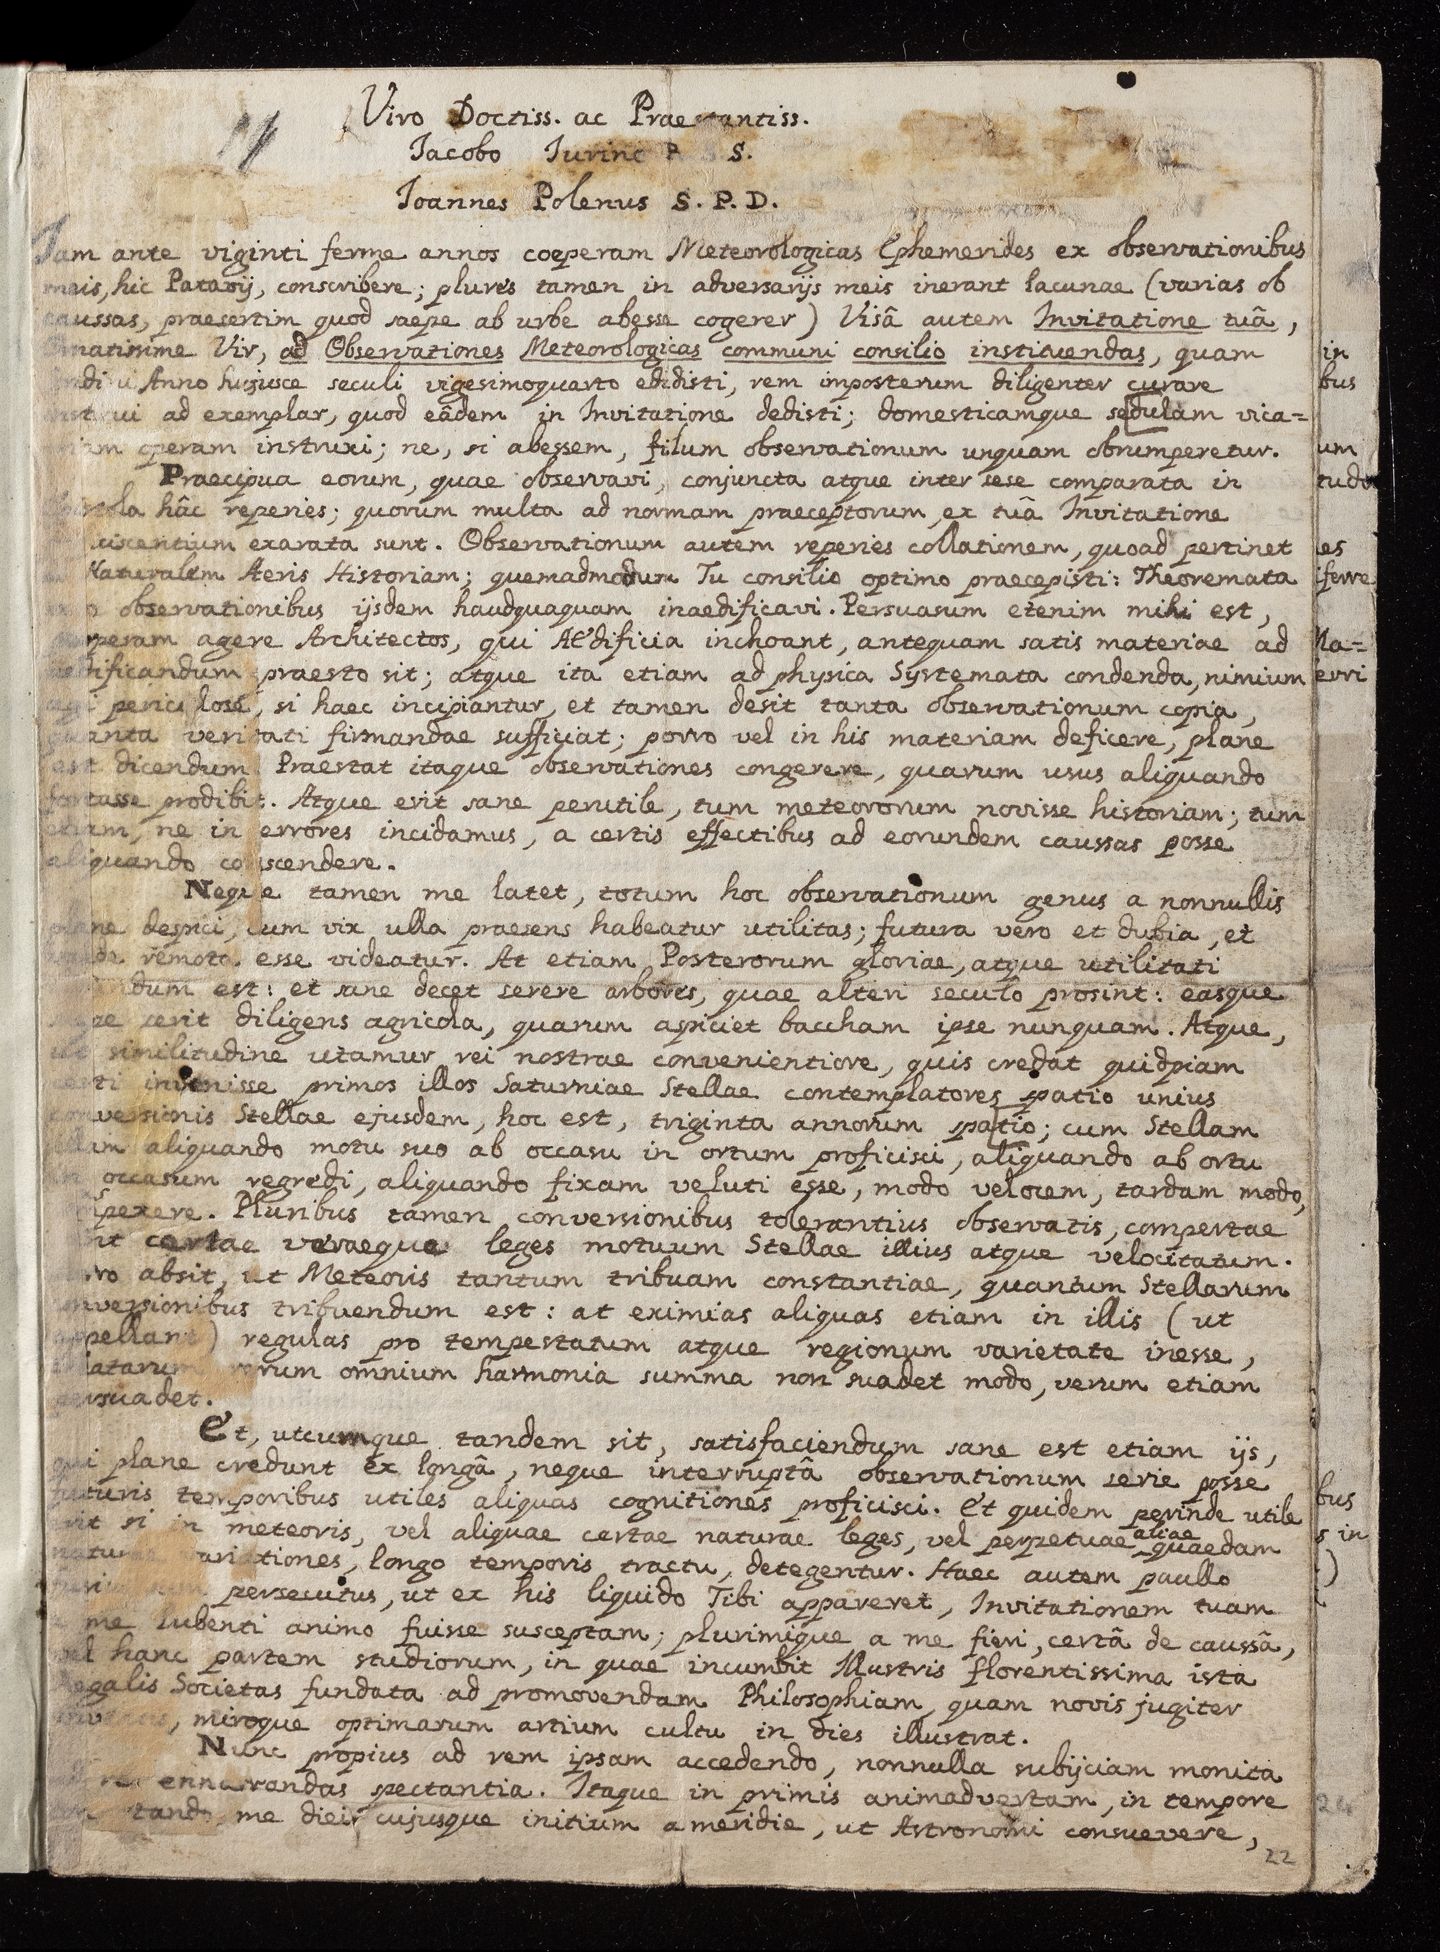 Viro Doctiss. ac Praestantiss.
Jacobo Jurino R. S. S.
Joannes Polenus S. P. D.
Jam ante viginti ferme annos coeperam Meteorologicas Ephemerides ex observationibus
meis, hic Patavij, conscribere; plures tamen in adversarijs meis inerant lacunae (varias ob
caussas, praesertim quod saepe ab urbe abesse cogerer) Visâ autem Invitatione tuâ,
Ornatissime Vir, ad Observationes Meteorologicas communi consilio instituendas, quam
Anno hujusce seculi vigesimoquarto edidisti, rem imposterum diligenter curare
ad exemplar, quod eâdem in Invitatione dedisti; domesticamque sedulam vica=
riam operam instruxi; ne, si abessem, filum observationum unquam obrumperetur.
Praecipua eorum, quae observavi, conjuncta atque inter sese comparata in
Epistola hâc reperies; quorum multa ad normam praeceptorum ex tuâ Invitatione
exarata sunt. Observationum autem reperies collationem, quoad pertinet
Naturalem Aeris Historiam; quemadmodum Tu consilio optimo praecepisti: Theoremata
observationibus ijsdem haudquaquam inaedificavi. Persuasum etenim mihi est,
perperam agere Architectos, qui Aedificia inchoant, antequam satis materiae ad
aedificandum praesto sit; atque ita etiam ad physica Systemata condenda, nimium
agi periculose, si haec incipiantur, et tamen desit tanta observationum copia,
quanta veritati firmandae sufficiat; porro vel in his materiam deficere, plane
est dicendum. Praestat itaque observationes congerere, quarum usus aliquando
fortasse prodibit. Atque erit sane perutile, tum meteororum novisse historiam; tum
etiam, ne in errores incidamus, a certis effectibus ad eorundem caussas posse
aliquando conscendere.
Neque tamen me latet, totum hoc observationum genus a nonnullis
plane despici, cum vix ulla praesens habeatur utilitas; futura vero et dubia, et
valde remota esse videatur. At etiam Posterorum gloriae, atque utilitati
est: et sane decet serere arbores, quae alteri seculo prosint: easque
saepe serit diligens agricola, quarum aspiciet baccham ipse nunquam. Atque,
ut similitudine utamur rei nostrae convenientiore, quis credat quidpiam
certi invenisse primos illos Saturniae Stellae contemplatores spatio unius
conversionis Stellae ejusdem, hoc est, triginta annorum spatio; cum Stellam
illam aliquando motu suo ab occasu in ortum proficisci, aliquando ab ortu
in occasum regredi, aliquando fixam veluti esse, modo velocem, tardam modo,
conspexere. Pluribus tamen conversionibus tolerantius observatis, compertae
sunt certae veraeque leges motuum Stellae illius atque velocitatum.
absit, ut Meteoris tantum tribuam constantiae, quantum Stellarum
conversionibus tribuendum est: at eximias aliquas etiam in illis (ut
appellant) regulas pro tempestatum atque regionum varietate inesse,
creatarum rerum omnium harmonia summa non suadet modo, verum etiam
persuadet.
Et, utcumque tandem sit, satisfaciendum sane est etiam ijs,
qui plane credunt ex longâ, neque interruptâ observationum serie posse
futuris temporibus utiles aliquas cognitiones proficisci. Et quidem perinde utile
erit si in meteoris, vel aliquae certae naturae leges, vel perpetuae aliae quaedam
naturae variationes, longo temporis tractu, detegentur. Haec autem paullo
fusius sum persecutus, ut ex his liquido Tibi appareret, Invitationem tuam
a me lubenti animo fuisse susceptam; plurimique a me fieri, certâ de caussâ,
vel hanc partem studiorum, in quae incumbit Illustris florentissima ista
Regalis Societas fundata ad promovendam Philosophiam, quam novis jugiter
inventis, miroque optimarum artium cultu in dies illustrat.
Nunc propius ad rem ipsam accedendo, nonnulla subijciam monita
ad res ennarrandas spectantia. Itaque in primis animadvertam, in tempore
me diei cujusque initium a meridie, ut Astronomi consuevere,
22
in
bus
um
tudi
es
iferre
Ma=
erri
bus
s in
)
24